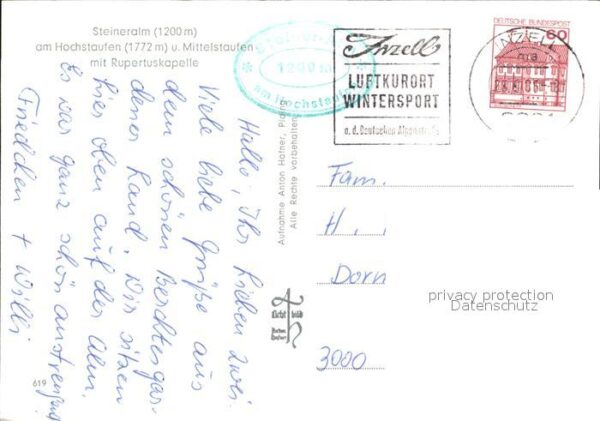 Steineralm (1200 m)
am Hochstaufen (1772 m) u. Mittelstaufen
mit Rupertuskapelle
1200 m
am Hochstaufen
Inzell
LUFTKURORT
WINTERSPORT
a. d. Deutschen Alpenstraße
DEUTSCHE BUNDESPOST
60
INZELL
Hallo, Ihr lieben zwei.
Viele liebe Grüße aus
dem schönen Berchtesgar-
dener Land. Wir sitzen
hier oben auf der Alm.
Es war ganz schön anstrengend
Friedchen + Willi
Aufnahme Anton Hafner,
Alle Rechte vorbehalten
Licht bild
Anton
Hafner
619
Fam.
H. .
Dorn
3000
privacy protection
Datenschutz